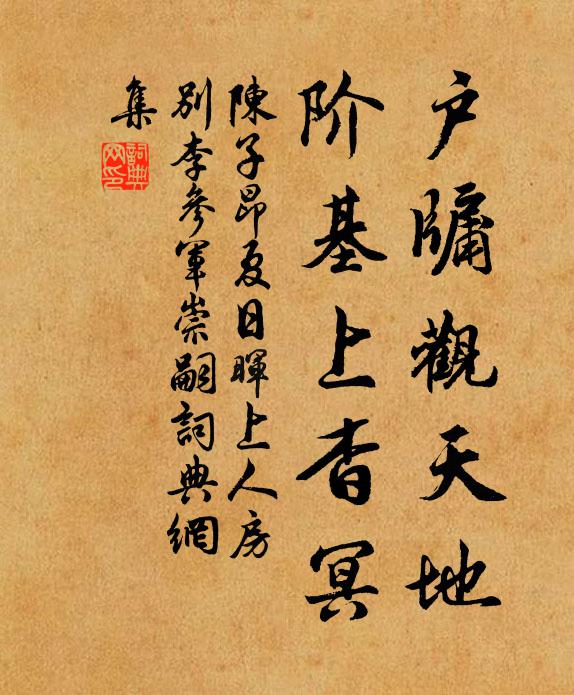 户牖觀天地
阶基上杳冥
陳子昂夏日暉上人房
别李參軍崇嗣詞典網
集
詞典網印